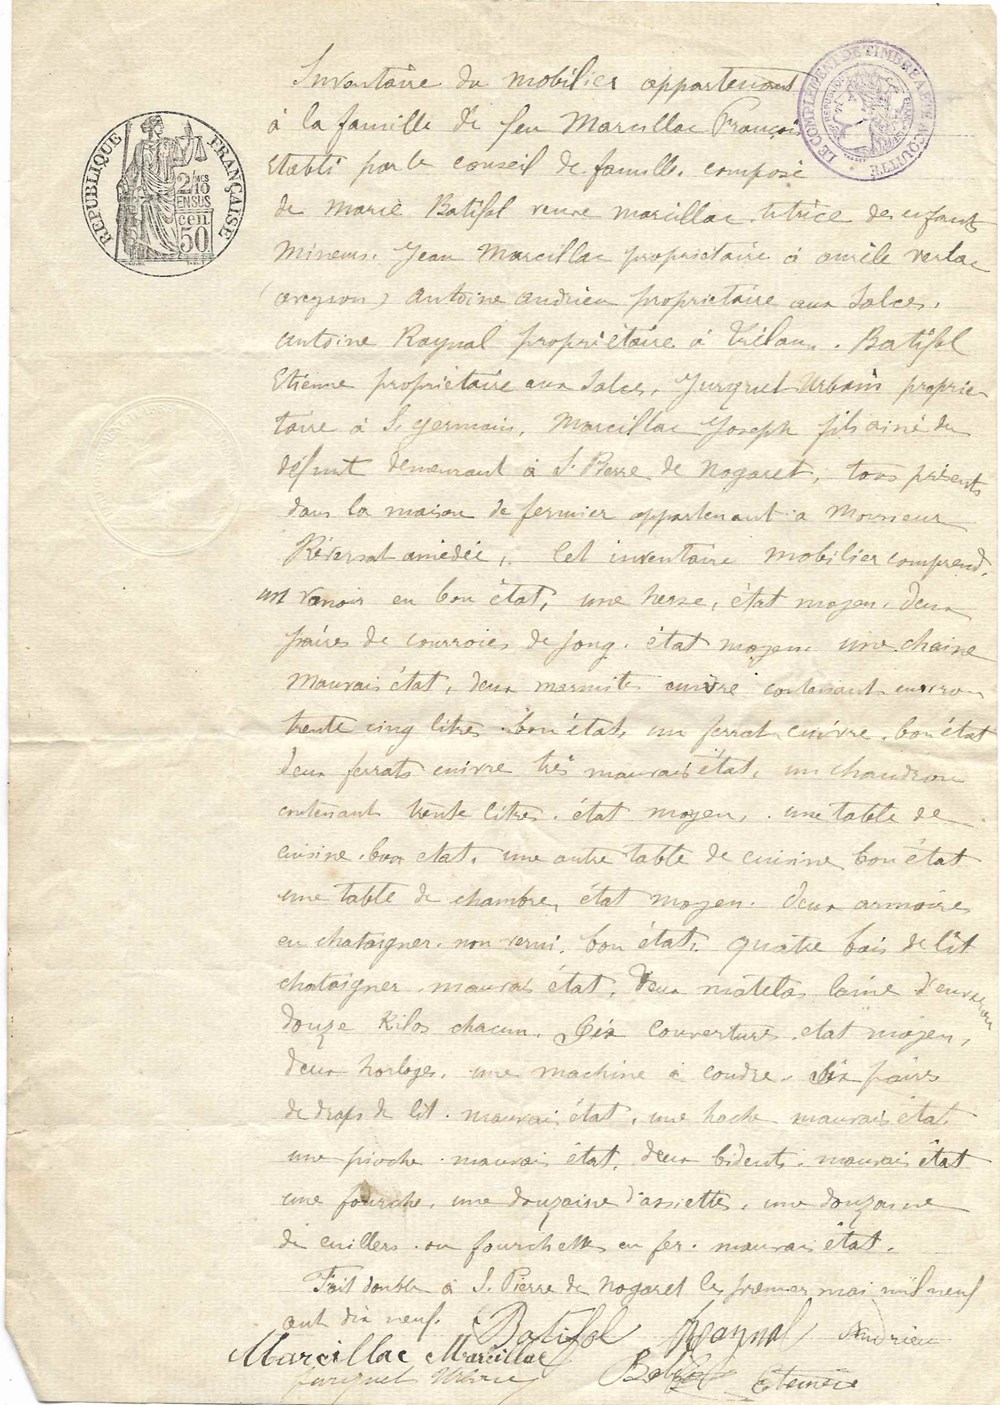 Inventaire du mobilier appartenant
à la famille de feu Marcillac François
Etabli par le conseil de famille. composé
de Marie Batifol veuve Marcillac tutrice des enfants
mineurs. Jean Marcillac propriétaire à aurèle verlac
(aveyron) Antoine Andrieu propriétaire aux Salces.
Antoine Raynal propriétaire à Trélans. Batifol
Etienne propriétaire aux Salces, Jurquet Urbain proprié-
taire à St germain. Marcillac Joseph fils ainé du
défunt demeurant à St Pierre de Nogaret, tous présents
dans la maison de fermier appartenant à Monsieur
Réversat amédée, Cet inventaire mobilier comprend.
un vanoir en bon état, une herse, état moyen, deux
paires de courroies de joug. état moyen. une chaine
mauvais état, deux marmites cuivre contenant environ
trente cinq litres. bon état, un ferrat cuivre. bon état
deux ferrats cuivre très mauvais état, un chaudron
contenant trente litres. état moyen, une table de
cuisine. bon etat, une autre table de cuisine bon état
une table de chambre, état moyen. deux armoires
en chataigner. non verni. bon état. quatre bois de lit
chataigner. mauvais état, deux matelas laine d'environ
douze Kilos chacun. Six couvertures. etat moyen,
deux horloges. une machine à coudre. Six paires
de draps de lit. mauvais état, une hache mauvais état
une pioche. mauvais état, deux bidents. mauvais état
une fourche, une douzaine d'assiettes, une douzaine
de cuillers ou fourchettes en fer. mauvais état.
Fait double à St Pierre de Nogaret le premier mai mil neuf
cent dix neuf.
Batifol Raynal Andrieu
Marcillac Marcillac
Jurquet Urbain Batifol Etienne
RÉPUBLIQUE FRANÇAISE
2/10mes
EN SUS
50 cen
LE COMPLEMENT DE TIMBRE A ETE ACQUITTE